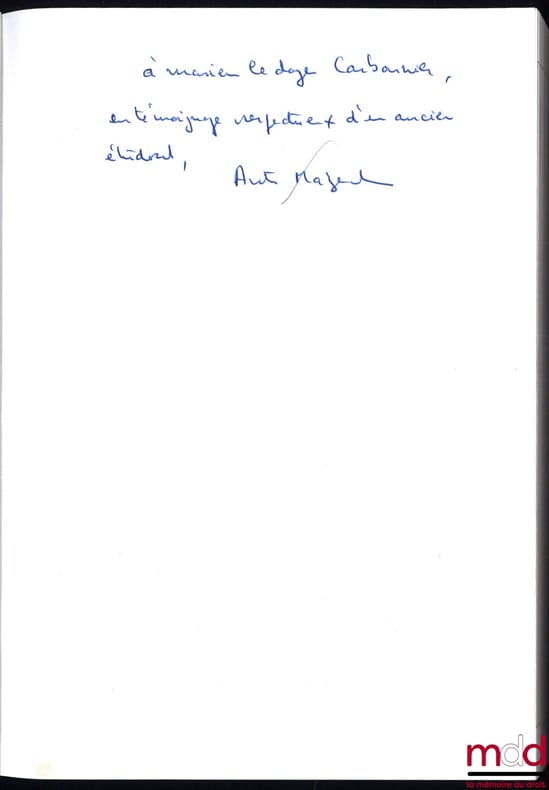 à monsieur le doyen Carbonnier,
en témoignage respectueux d'un ancien
étudiant,
mdd
la mémoire du droit